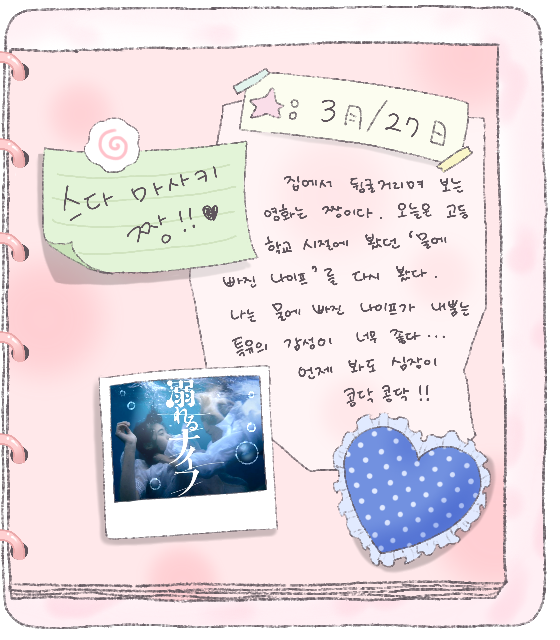 ☆: 3月/27日
스다 마사키
짱!!♥
집에서 뒹굴거리며 보는
영화는 짱이다. 오늘은 고등
학교 시절에 봤던 '물에
빠진 나이프'를 다시 봤다.
나는 물에 빠진 나이프가 내뿜는
특유의 감성이 너무 좋다...
언제 봐도 심장이
콩닥 콩닥!!
溺れるナイフ